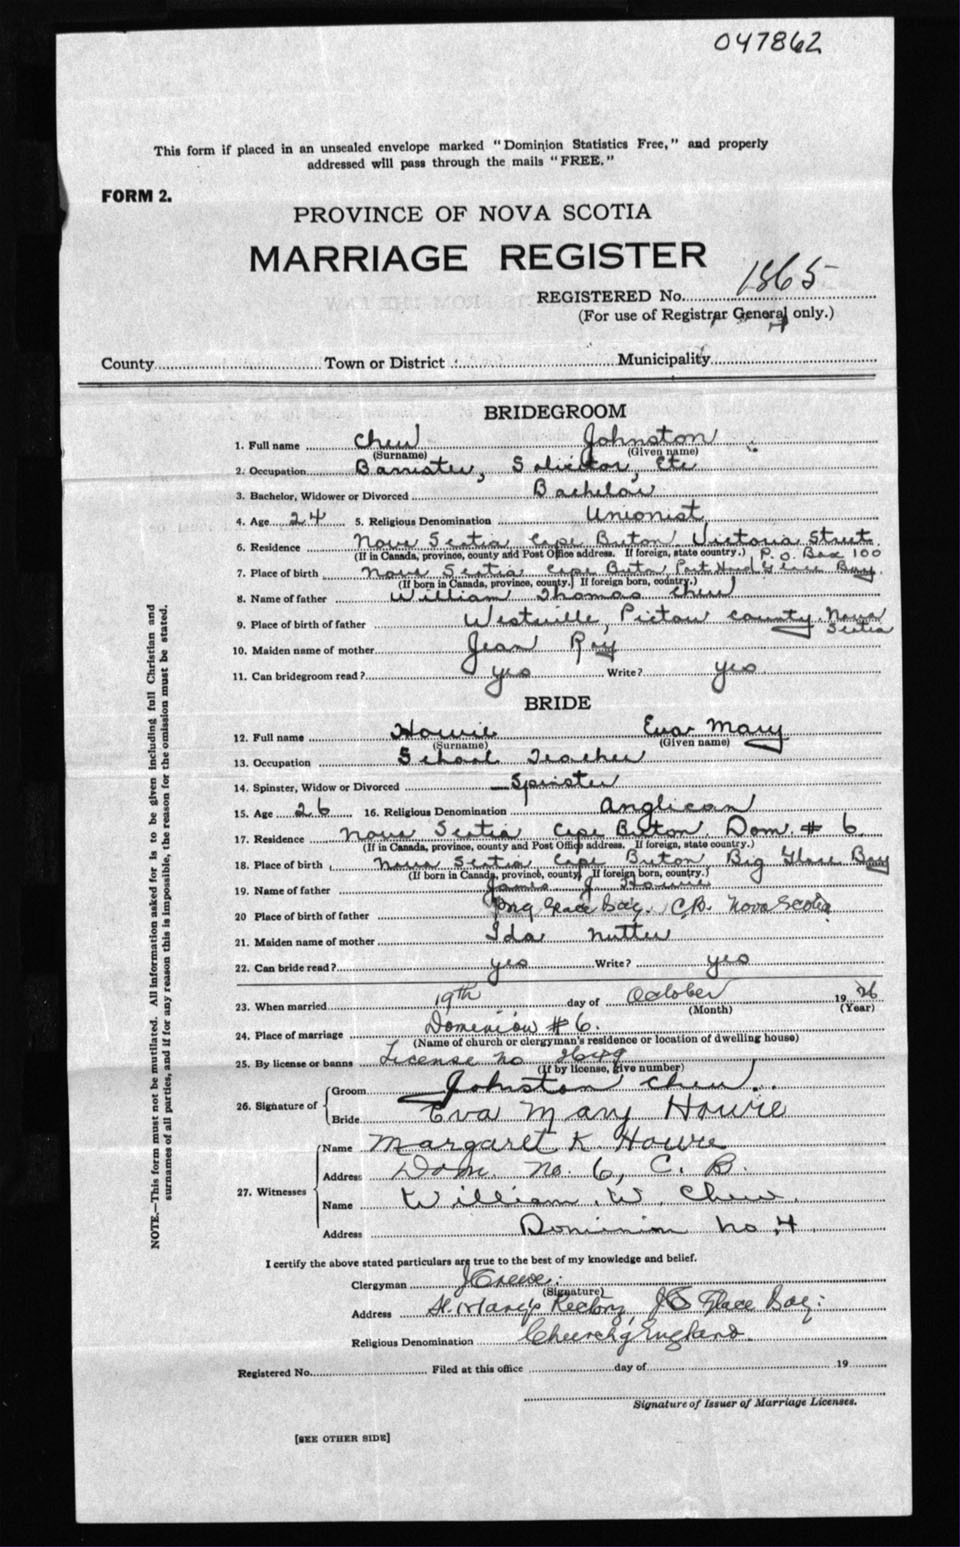 047862
This form if placed in an unsealed envelope marked "Dominion Statistics Free," and properly
addressed will pass through the mails "FREE."
FORM 2.
PROVINCE OF NOVA SCOTIA
MARRIAGE REGISTER
REGISTERED No. 1865
(For use of Registrar General only.)
County Town or District Municipality
BRIDEGROOM
1. Full name Chew Johnston
(Surname) (Given name)
2. Occupation Barrister, Solicitor, Etc
3. Bachelor, Widower or Divorced Bachelor
4. Age 24 5. Religious Denomination Unionist
6. Residence Nova Scotia Cape Breton Victoria Street
(If in Canada, province, county and Post Office address. If foreign, state country.) P.O. Box 100
7. Place of birth Nova Scotia Cape Breton Port Hood Glace Bay
(If born in Canada, province, county. If foreign born, country.)
8. Name of father William Thomas Chew
9. Place of birth of father Westville, Pictou County, Nova
Scotia
10. Maiden name of mother Jean Roy
11. Can bridegroom read? yes Write? yes
BRIDE
12. Full name Howie Eva Mary
(Surname) (Given name)
13. Occupation School Teacher
14. Spinster, Widow or Divorced Spinster
15. Age 26 16. Religious Denomination Anglican
17. Residence Nova Scotia Cape Breton Dom. # 6.
(If in Canada, province, county and Post Office address. If foreign, state country.)
18. Place of birth Nova Scotia Cape Breton Big Glace Bay
(If born in Canada, province, county. If foreign born, country.)
19. Name of father James J. Howie
20 Place of birth of father Big Glace Bay. C.B. Nova Scotia
21. Maiden name of mother Ida Nutter
22. Can bride read? yes Write? yes
23. When married 19th day of October 1926
(Month) (Year)
24. Place of marriage Dominion # 6.
(Name of church or clergyman's residence or location of dwelling house)
25. By license or banns License no
(If by license, give number)
26. Signature of Groom Johnston Chew
Bride Eva Mary Howie
27. Witnesses Name Margaret K Howie
Address Dom. No. 6, C. B.
Name William W. Chew
Address Dominion No. 4
I certify the above stated particulars are true to the best of my knowledge and belief.
Clergyman
(Signature)
Address St. Mary's Rectory, Glace Bay.
Religious Denomination Church of England.
Registered No. Filed at this office day of 19
Signature of Issuer of Marriage Licenses.
[SEE OTHER SIDE]
NOTE.—This form must not be mutilated. All information asked for is to be given including full Christian and
surnames of all parties, and if for any reason this is impossible, the reason for the omission must be stated.